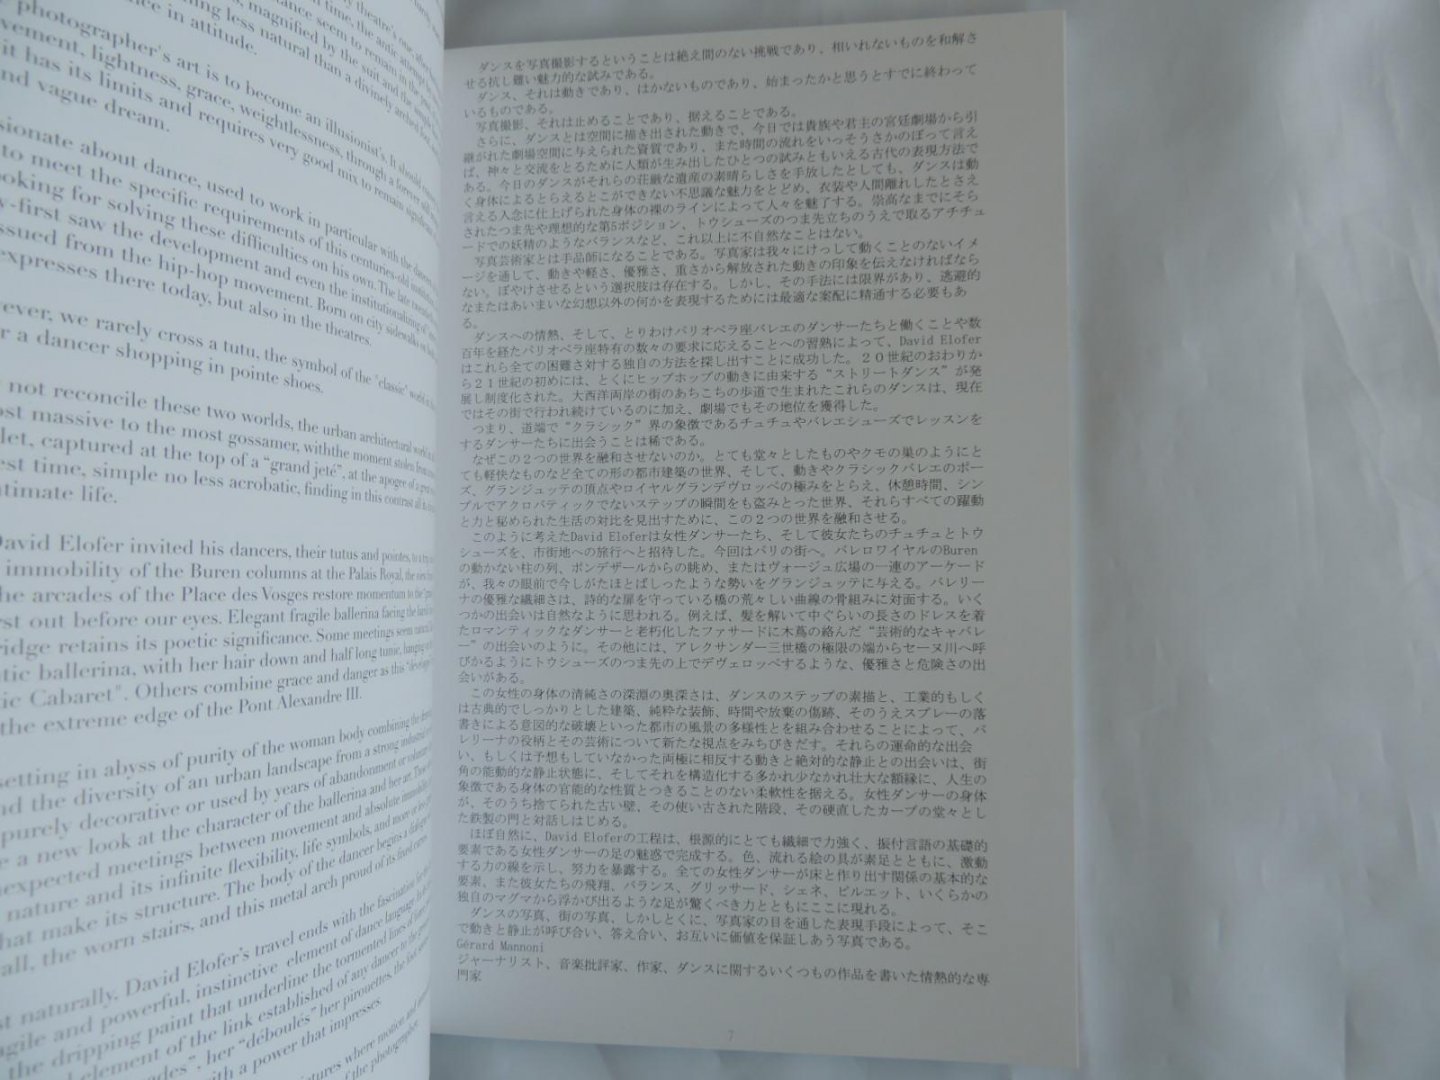 photographer's art is to become an illusionist's. It should
vement, lightness, grace, weightlessness, through a forever still
it has its limits and requires very good mix to remain
nd vague dream.
sionate about dance, used to work in particular with the dancers
to meet the specific requirements of this centuries-old
oking for solving these difficulties on his own. The late
y-first saw the development and even the institutionalizing of
issued from the hip-hop movement. Born on city sidewalks on
expresses there today, but also in the theatres.
ever, we rarely cross a tutu, the symbol of the "classic" world
r a dancer shopping in pointe shoes.
not reconcile these two worlds, the urban architectural world
ost massive to the most gossamer, withthe moment stolen
let, captured at the top of a "grand jeté", at the apogee of a
est time, simple no less acrobatic, finding in this contrast all
ntimate life.
David Elofer invited his dancers, their tutus and pointes,
immobility of the Buren columns at the Palais Royal, the
he arcades of the Place des Vosges restore momentum to the
rst out before our eyes. Elegant fragile ballerina facing the
ridge retains its poetic significance. Some meetings seem natural
tic ballerina, with her hair down and half long tunic, hanging
ic Cabaret". Others combine grace and danger as this
the extreme edge of the Pont Alexandre III.
setting in abyss of purity of the woman body combining the
nd the diversity of an urban landscape from a strong industrial
purely decorative or used by years of abandonment or voluntary
e a new look at the character of the ballerina and her art. These
expected meetings between movement and absolute immobility
nature and its infinite flexibility, life symbols, and more or less
hat make its structure. The body of the dancer begins a dialogue
all, the worn stairs, and this metal arch proud of its fixed curves.
st naturally, David Elofer's travel ends with the fascination
gile and powerful, instinctive element of dance language
the dripping paint that underline the tormented lines of
element of the link established of any dancer to the
ades", her "déboulés" her pirouettes, the
with a power that impresses.
ictures where motion and
of the photographer.
ダンスを写真撮影するということは絶え間のない挑戦であり、相いれないものを和解さ
せる抗し難い魅力的な試みである。
ダンス、それは動きであり、はかないものであり、始まったかと思うとすでに終わって
いるものである。
写真撮影、それは止めることであり、据えることである。
さらに、ダンスとは空間に描き出された動きで、今日では貴族や君主の宮廷劇場から引
継がれた劇場空間に与えられた資質であり、また時間の流れをいっそうさかのぼって言え
ば、神々と交流をとるために人類が生み出したひとつの試みともいえる古代の表現方法で
ある。今日のダンスがそれらの荘厳な遺産の素晴らしさを手放したとしても、ダンスは動
く身体によるとらえるとこができない不思議な魅力をとどめ、衣装や人間離れしたとさえ
言える入念に仕上げられた身体の裸のラインによって人々を魅了する。崇高なまでにそら
されたつま先や理想的な第5ポジション、トウシューズのつま先立ちのうえで取るアチチュ
ードでの妖精のようなバランスなど、これ以上に不自然なことはない。
写真芸術家とは手品師になることである。写真家は我々にけっして動くことのないイメ
ージを通して、動きや軽さ、優雅さ、重さから解放された動きの印象を伝えなければなら
ない。ぼやけさせるという選択肢は存在する。しかし、その手法には限界があり、逃避的
なまたはあいまいな幻想以外の何かを表現するためには最適な案配に精通する必要もあ
る。
ダンスへの情熱、そして、とりわけパリオペラ座バレエのダンサーたちと働くことや数
百年を経たパリオペラ座特有の数々の要求に応えることへの習熟によって、David Elofer
はこれら全ての困難さ対する独自の方法を探し出すことに成功した。２０世紀のおわりか
ら２１世紀の初めには、とくにヒップホップの動きに由来する“ストリートダンス”が発
展し制度化された。大西洋両岸の街のあちこちの歩道で生まれたこれらのダンスは、現在
ではその街で行われ続けているのに加え、劇場でもその地位を獲得した。
つまり、道端で“クラシック”界の象徴であるチュチュやバレエシューズでレッスンを
するダンサーたちに出会うことは稀である。
なぜこの２つの世界を融和させないのか。とても堂々としたものやクモの巣のようにと
ても軽快なものなど全ての形の都市建築の世界、そして、動きやクラシックバレエのポー
ズ、グランジュッテの頂点やロイヤルグランデヴロッペの極みをとらえ、休憩時間、シン
プルでアクロバティックでないステップの瞬間をも盗みとった世界、それらすべての躍動
と力と秘められた生活の対比を見出すために、この２つの世界を融和させる。
このように考えたDavid Eloferは女性ダンサーたち、そして彼女たちのチュチュとトウ
シューズを、市街地への旅行へと招待した。今回はパリの街へ。パレロワイヤルのBuren
の動かない柱の列、ポンデザールからの眺め、またはヴォージュ広場の一連のアーケード
が、我々の眼前で今しがたほとばしったような勢いをグランジュッテに与える。バレリー
ナの優雅な繊細さは、詩的な扉を守っている橋の荒々しい曲線の骨組みに対面する。いく
つかの出会いは自然なように思われる。例えば、髪を解いて中ぐらいの長さのドレスを着
たロマンティックなダンサーと老朽化したファサードに木蔦の絡んだ“芸術的なキャバレ
ー”の出会いのように。その他には、アレクサンダー三世橋の極限の端からセーヌ川へ呼
びかるようにトウシューズのつま先の上でデヴェロッペするような、優雅さと危険さの出
会いがある。
この女性の身体の清純さの深淵の奥深さは、ダンスのステップの素描と、工業的もしく
は古典的でしっかりとした建築、純粋な装飾、時間や放棄の傷跡、そのうえスプレーの落
書きによる意図的な破壊といった都市の風景の多様性とを組み合わせることによって、バ
レリーナの役柄とその芸術について新たな視点をみちびきだす。それらの運命的な出会
い、もしくは予想もしていなかった両極に相反する動きと絶対的な静止との出会いは、街
角の能動的な静止状態に、そしてそれを構造化する多かれ少なかれ壮大な額縁に、人生の
象徴である身体の官能的な性質とつきることのない柔軟性を据える。女性ダンサーの身体
が、そのうち捨てられた古い壁、その使い古された階段、その硬直したカーブの堂々とし
た鉄製の門と対話しはじめる。
ほぼ自然に、David Eloferの工程は、根源的にとても繊細で力強く、振付言語の基礎的
要素である女性ダンサーの足の魅惑で完成する。色、流れる絵の具が素足とともに、激動
する力の線を示し、努力を暴露する。全ての女性ダンサーが床と作り出す関係の基本的な
要素、また彼女たちの飛翔、バランス、グリッサード、シェネ、ピルエット、いくらかの
独自のマグマから浮かび出るような足が驚くべき力とともにここに現れる。
ダンスの写真、街の写真、しかしとくに、写真家の目を通した表現手段によって、そこ
で動きと静止が呼び合い、答え合い、お互いに価値を保証しあう写真である。
Gérard Mannoni
ジャーナリスト、音楽批評家、作家、ダンスに関するいくつもの作品を書いた情熱的な専
門家
7